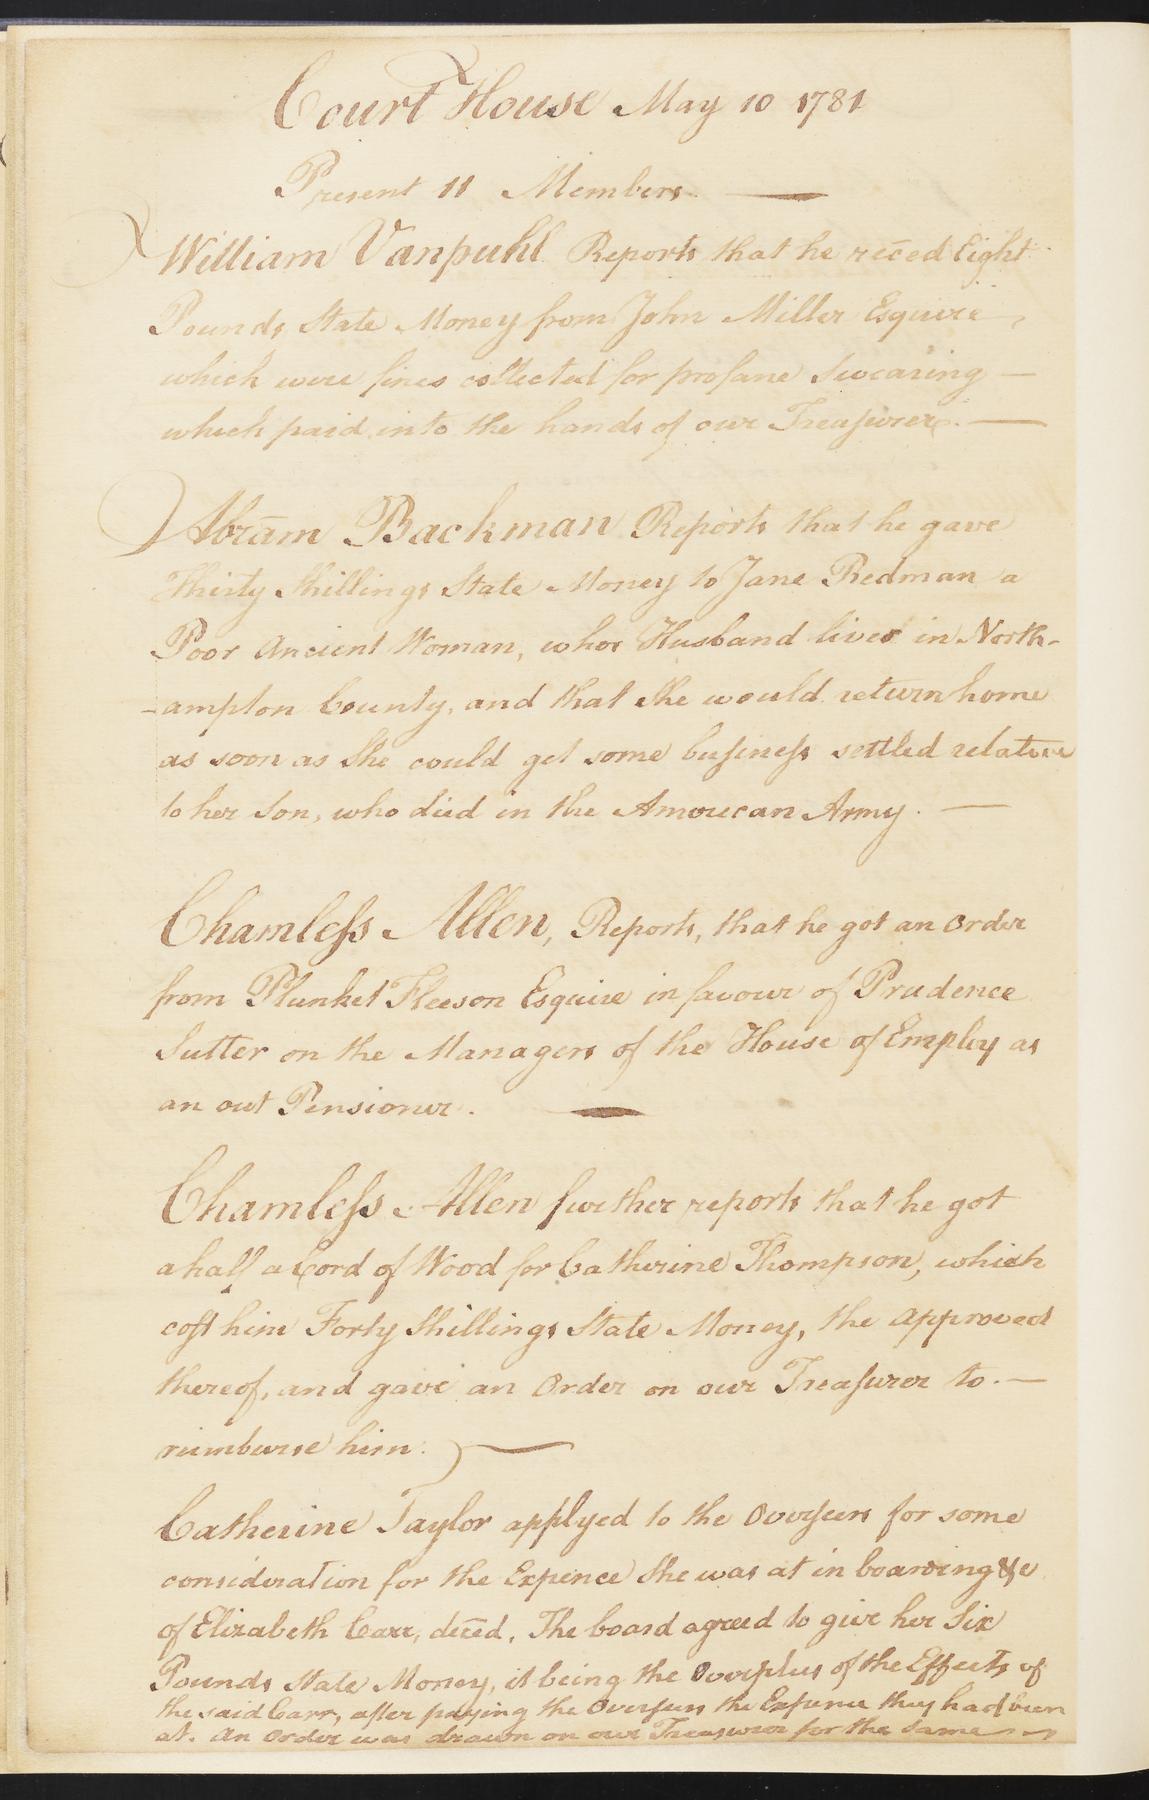 Court House May 10 1781
Present 11 Members
William Vanpuhl Reports that he reced Eight
Pounds State Money from John Miller Esquire,
which were fines collected for profane Swearing —
which paid into the hands of our Treasurer. —
Abram Backman Reports that he gave
Thirty Shillings State Money to Jane Redman a
Poor Ancient Woman, whos Husband lives in North-
-ampton County, and that she would return home
as soon as She could get some business settled relative
to her Son, who died in the Amoucan Army. —
Chamless Allen, Reports, that he got an order
from Plunket Fleeson Esquire in favour of Prudence
Sutter on the Managers of the House of Employ as
an out Pensioner.
Chamless Allen further reports that he got
a half a Cord of Wood for Catherine Thompson, which
cost him Forty Shillings State Money, the approved
thereof, and gave an Order on our Treasurer to. —
reimburse him.
Catherine Taylor applyed to the Overseers for some
consideration for the Expence She was at in boarding &c
of Elizabeth Carr, deced. The board agreed to give her Six
Pounds State Money, it being the Overplus of the Effects of
the said Carr, after paying the Overseers the Expence they had been
at. An Order was drawn on our Treasurer for the same